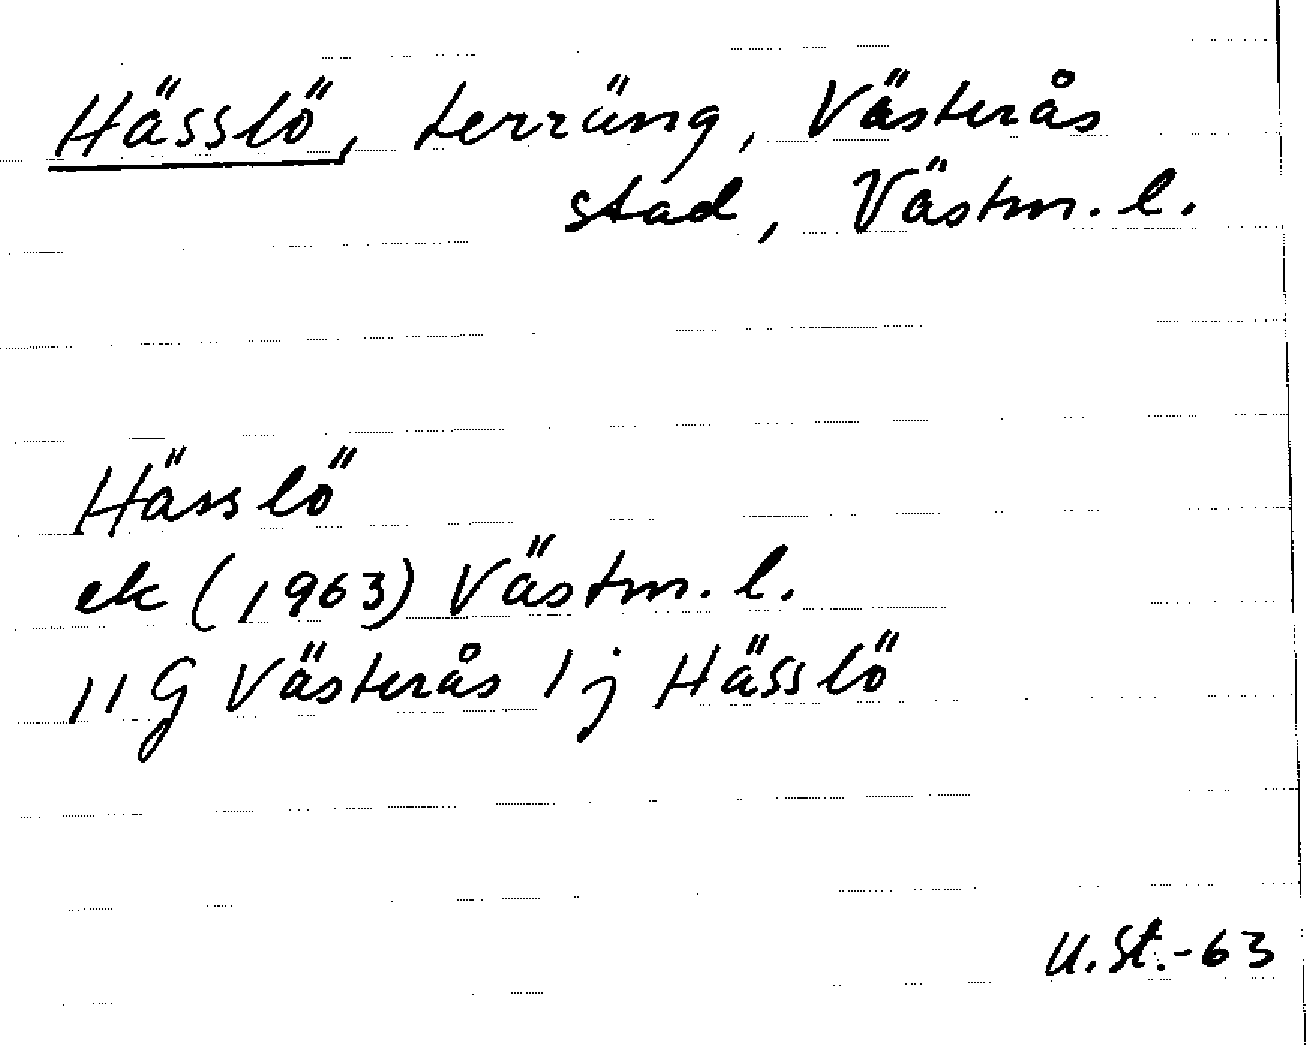 Hässlö, terräng, Västerås
stad, Västm. l.
Hässlö
ek (1963) Västm. l.
11 G Västerås 1 j Hässlö
U. St. -63